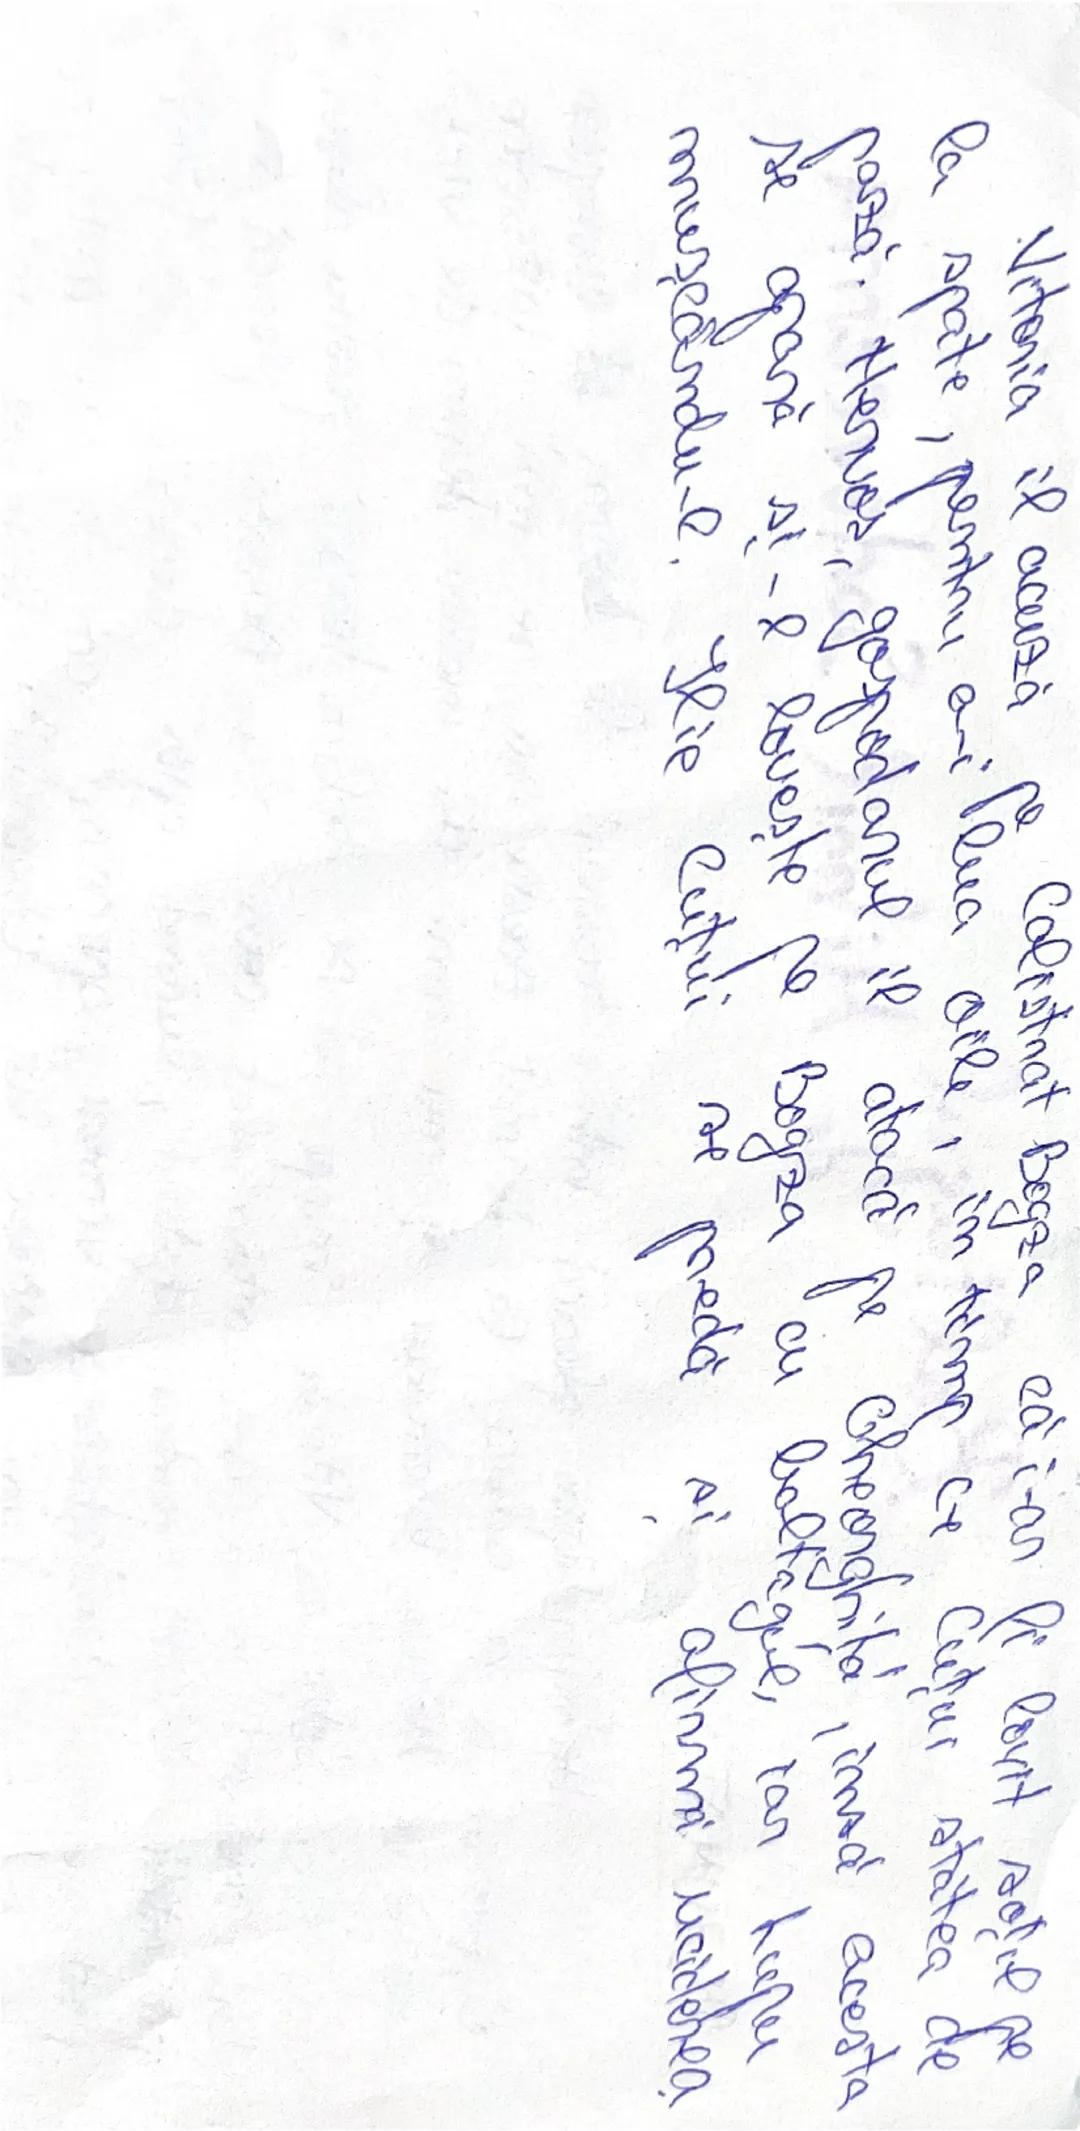 Vitoria îl acuză pe Calistrat Bogza că i-ar fi lovit soțul pe
la spate, pentru a-i fura oile, în timp ce Cuțui stătea de
pază. Nervos, gospodarul îl atacă pe Gheorghiță, însă acesta
se apară și-l lovește pe Bogza cu baltagul, iar Lupu
mușcându-l. Ilie Cuțui se predă și afirmă uciderea